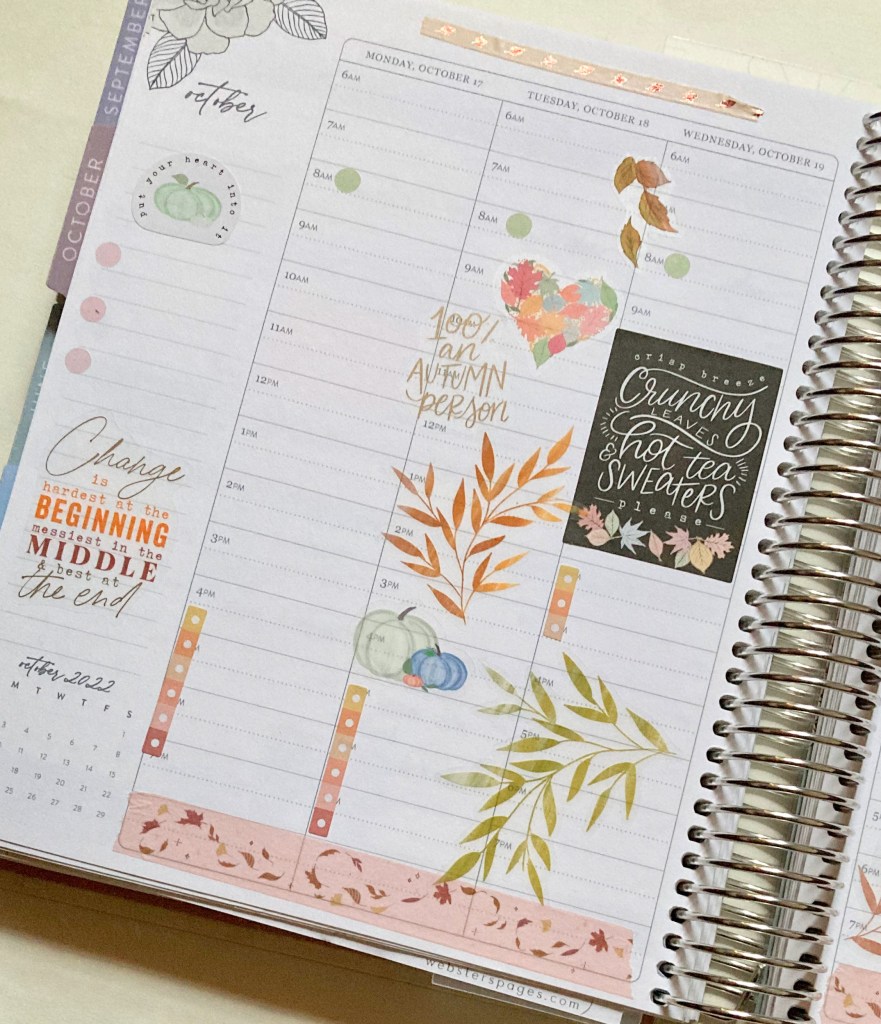 SEPTEMBER
OCTOBER
october
put your heart into it
Change
is
hardest at the
BEGINNING
messiest in the
MIDDLE
& best at
the end
october 2022
M T W T F S
1
3 4 5 6 7 8
11 12 13 14 15
18 19 20 21 22
25 26 27 28 29
MONDAY, OCTOBER 17
6AM
7AM
8AM
9AM
10AM
11AM
12PM
1PM
2PM
3PM
4PM
TUESDAY, OCTOBER 18
6AM
7AM
8AM
9AM
100%
an
AUTUMN
person
12PM
1PM
2PM
3PM
4PM
WEDNESDAY, OCTOBER 19
6AM
8AM
9AM
crisp breeze
Crunchy
LEAVES
hot tea
& SWEATERS
please
4PM
5PM
6PM
7PM
6PM
7PM
websterspages.com